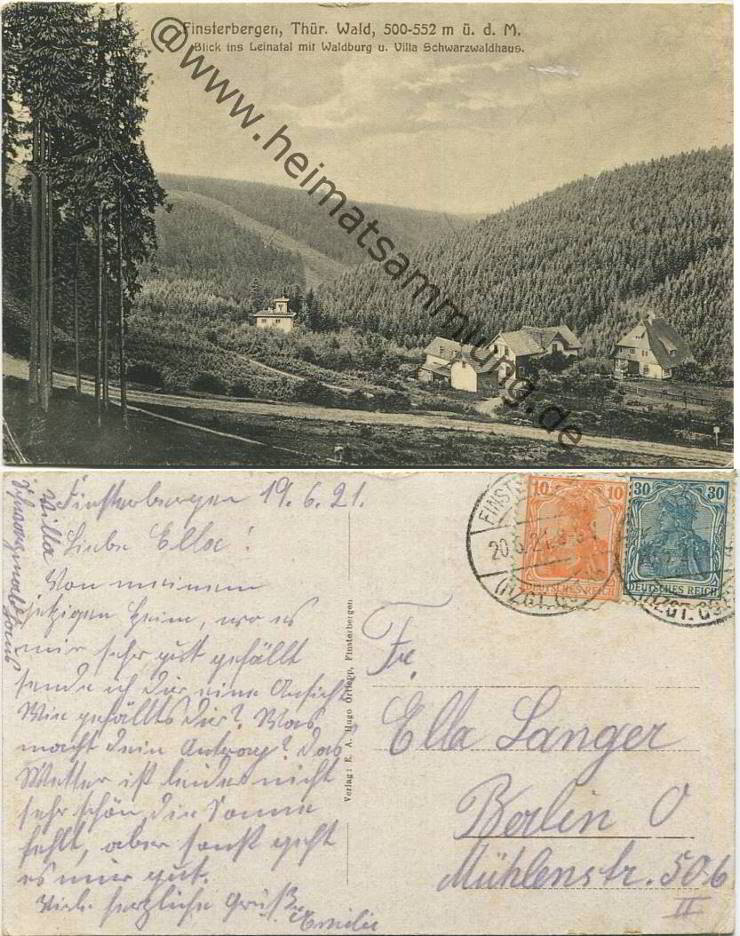 Finsterbergen, Thür. Wald, 500-552 m ü. d. M.
Blick ins Leinatal mit Waldburg u. Villa Schwarzwaldhaus.
@www.heimatsammlung.de
Villa
Schwarzwaldhaus
Finsterbergen 19.6.21.
Liebe Ella!
Von meinem
jetzigen Heim, wo es
mir sehr gut gefällt
sende ich Dir eine Ansicht
Wie gefällts Dir? Was
macht dein Antrag? Das
Wetter ist leider nicht
sehr schön, die Sonne
fehlt, aber sonst geht
es mir gut.
Viele herzliche Grüße
Emilie
Verlag: E. A. Hugo Ortlepp, Finsterbergen
10 10
DEUTSCHES REICH
30 30
DEUTSCHES REICH
FINSTER
20.6.21. 8-9
(HZGT. G
(HZGT. G
Fr.
Ella Langer
Berlin O
Mühlenstr. 50b
II